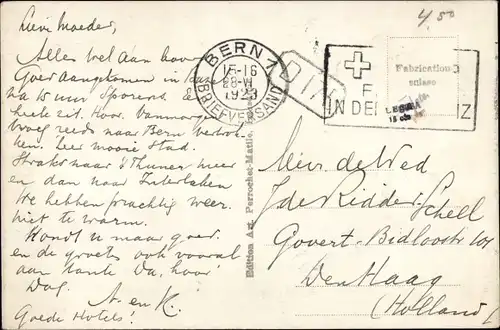 Lieve Moeder,
Alles wel aan boord
Goed aangekomen in
na 15 uur sporens.
heele zit. Hoor. Vanmorgen
vroeg reeds naar Bern vertrok-
ken. Zeer mooie Stad.
Straks naar 't Thuner meer
en dan naar Interlaken
We hebben prachtig weer.
niet te warm.
Houdt u maar goed.
en de groeten ook vooral
aan tante Da, hoor
Dag.
A. en K.
Goede Hotels!
4,50
BERN 1
15-16
28.VI
1923
BRIEFVERSAND
Edition Art. Perrochet-Matile,
Fabrication
suisse
IN DE
Z
Mevr. de Wed
J de Ridder-Schell
Govert-Bidloostr 101
Den Haag
(Holland)